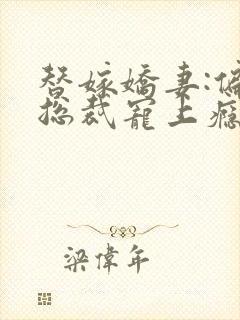 替嫁嬌妻:偏
總裁寵上癮
梁偉年